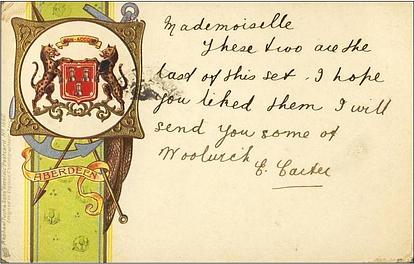 Mademoiselle
These two are the
last of this set. I hope
you liked them I will
send you some of
Woolwich
E. Carter
BON-ACCORD
ABERDEEN